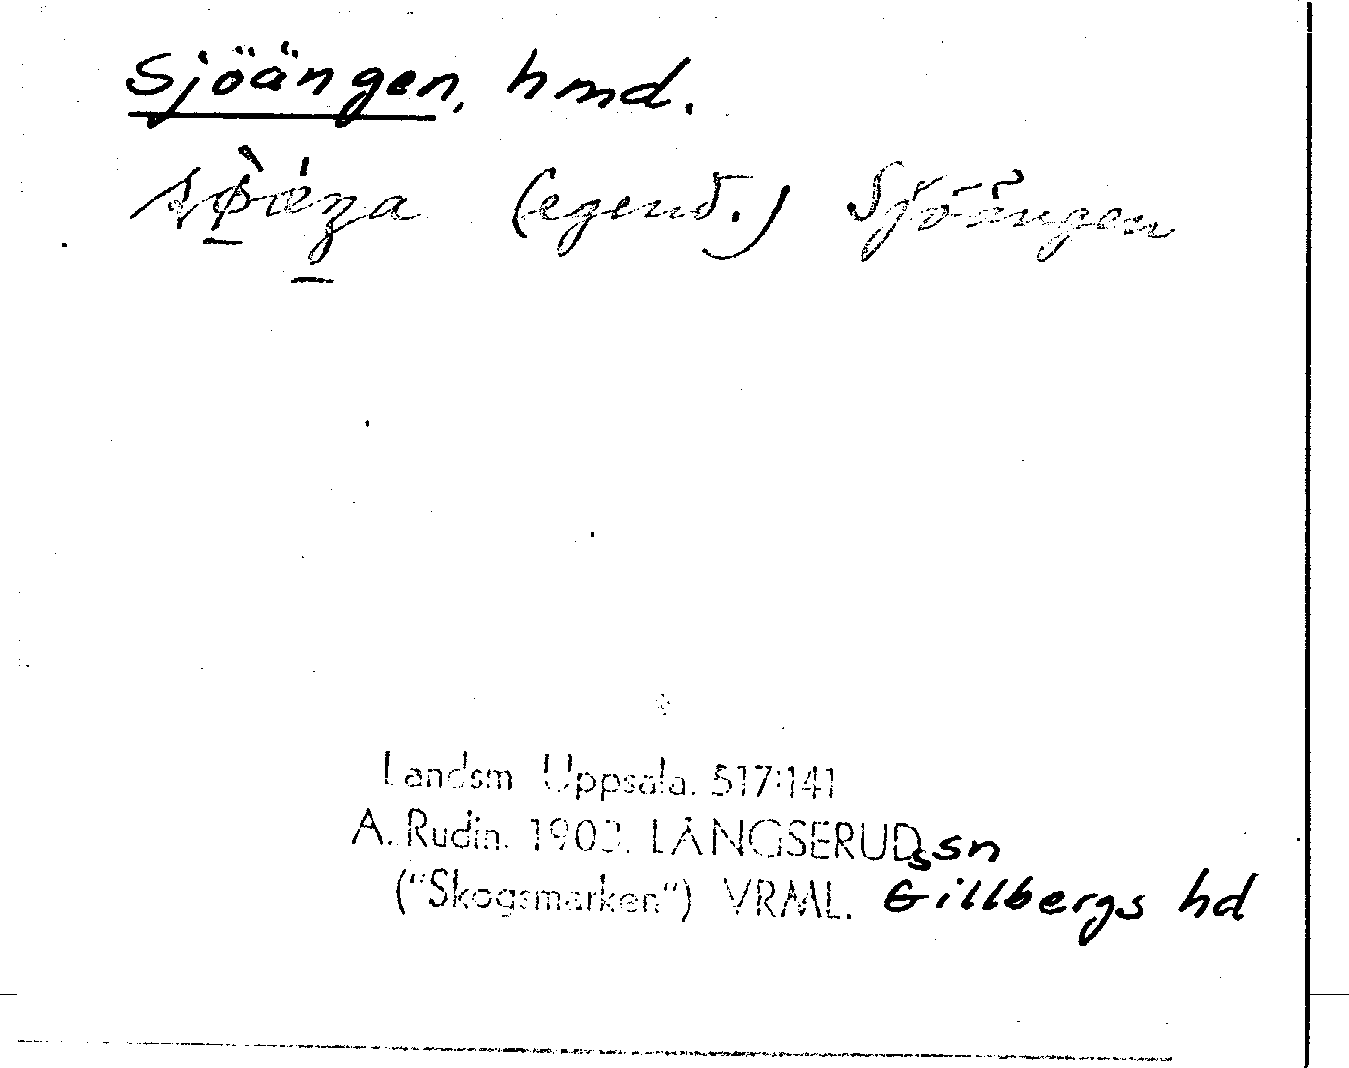 Sjöängen, hmd.
(egend.) Sjöängen
Landsm Uppsala. 517:141
A. Rudin. 1903. LÅNGSERUDs sn
("Skogsmarken") VRML. Gillbergs hd